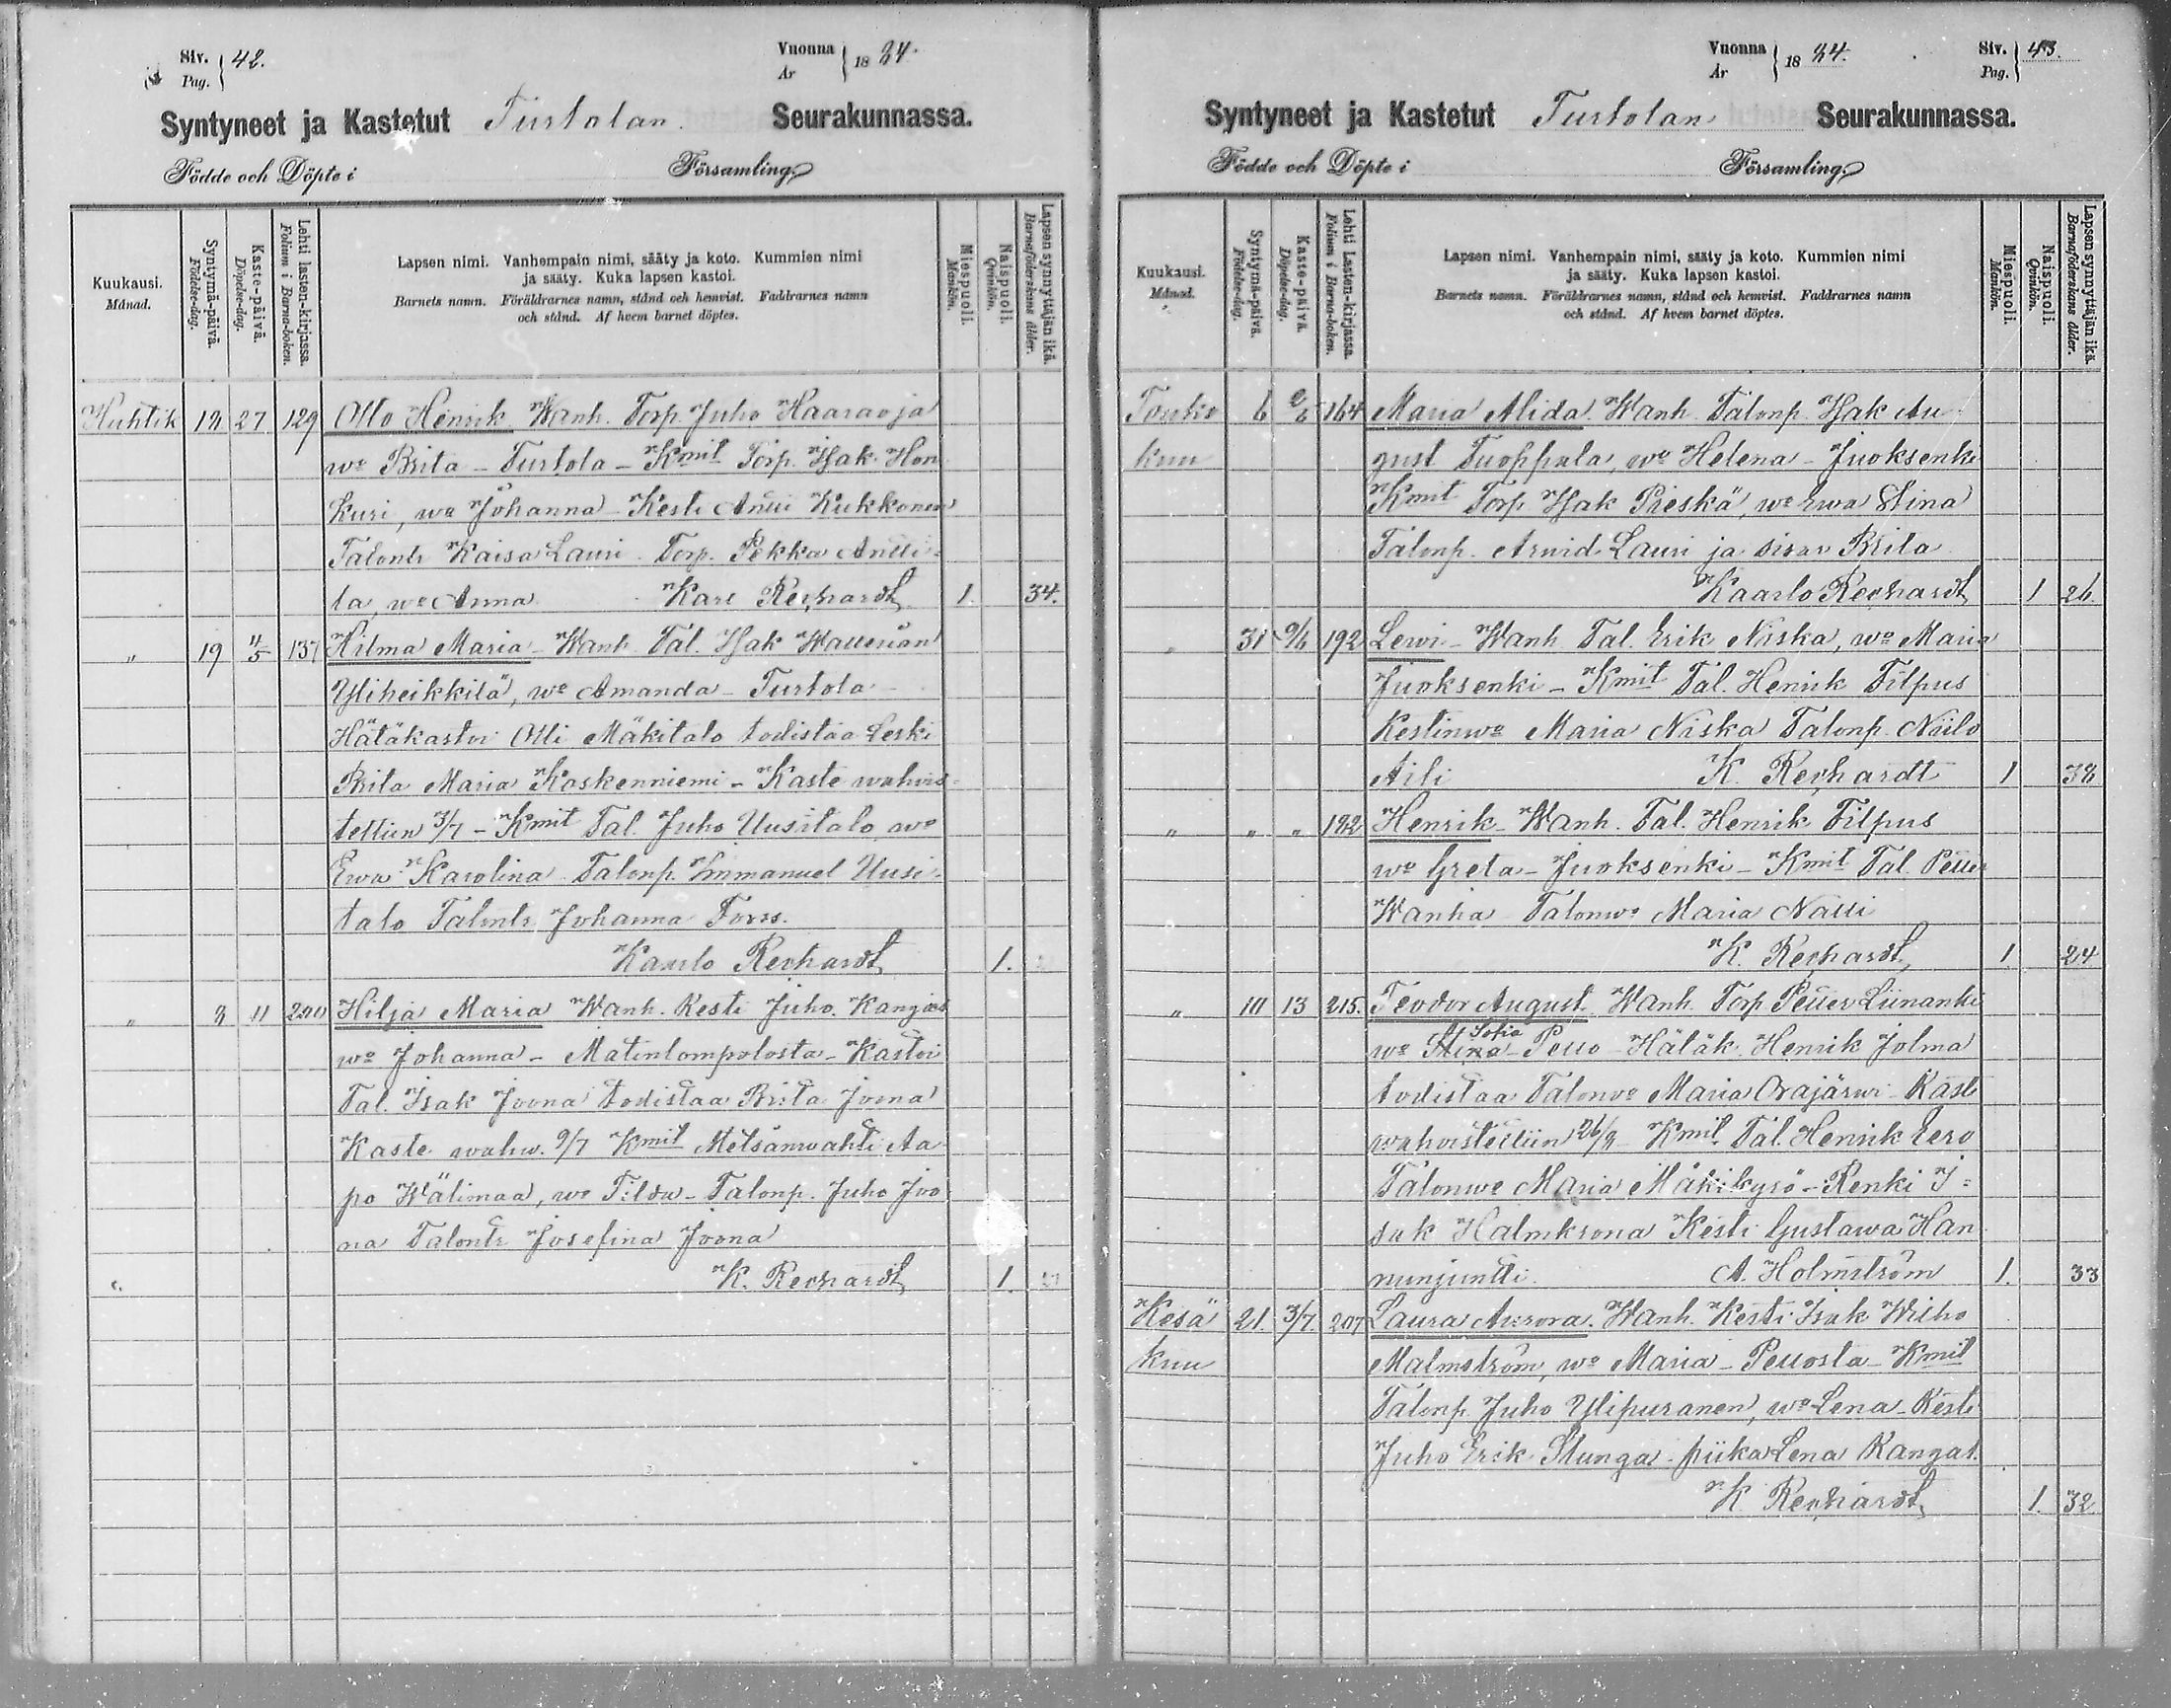 Siv. 42.
Pag.
Vuonna 1884.
År
Syntyneet ja Kastetut Turtolan Seurakunnassa.
Födde och Döpte i Församling
Kuukausi. Månad.
Syntymä-päivä. Födelse-dag.
Kaste-päivä. Döpelse-dag.
Lehti lasten-kirjassa. Folium i Barna-boken.
Lapsen nimi. Vanhempain nimi, sääty ja koto. Kummien nimi
ja sääty. Kuka lapsen kastoi.
Barnets namn. Föräldrarnes namn, stånd och hemvist. Faddrarnes namn
och stånd. Af hvem barnet döptes.
Miespuoli. Mankön.
Naispuoli. Qvinkön.
Lapsen synnyttäjän ikä. Barnaföderskans ålder.
Huhtik 18 27 129 Otto Henrik Wanh. Torp. Juho Haaraoja
wo Brita - Turtola - Kmit Torp. Isak Hon
kuri, wo Johanna - Kesti Antti Kukkonen
Talontr Kaisa Lauri. Torp. Pekka Antti-
la, wo Anna Karl Rechardt 1 34.
" 19 4/5 137 Hilma Maria - Wanh. Tal. Isak Walleriän
Yliheikkilä, wo Amanda - Turtola -
Hätäkastoi Olli Mäkitalo todistaa Leski
Brita Maria Koskenniemi - Kaste wahwis-
tettiin 3/7 - Kmit Tal. Juho Uusitalo, wo
Ewa Karolina Talonp. Emmanuel Uusi-
talo Talontr. Johanna Torss.
Kaarlo Rechardt 1.
" 8 11 200 Hilja Maria Wanh. Kesti Juho Kangas
wo Johanna - Matinlompolosta - Kastoi
Tal. Isak Joona todistaa Brita Joona
Kaste wahw. 9/7 Kmit Metsänwahti Aa
po Wälimaa, wo Tilda - Talonp. Juho Joo
na Talontr Josefina Joona
K. Rechardt 1.
Vuonna 1884.
År
Siv. 43.
Pag.
Syntyneet ja Kastetut Turtolan Seurakunnassa.
Födde och Döpte i Församling
Kuukausi. Månad.
Syntymä-päivä. Födelse-dag.
Kaste-päivä. Döpelse-dag.
Lehti Lasten-kirjassa. Folium i Barna-boken.
Lapsen nimi. Vanhempain nimi, sääty ja koto. Kummien nimi
ja sääty. Kuka lapsen kastoi.
Barnets namn. Föräldrarnes namn, stånd och hemvist. Faddrarnes namn
och stånd. Af hvem barnet döptes.
Miespuoli. Mankön.
Naispuoli. Qvinkön.
Lapsen synnyttäjän ikä. Barnaföderskans ålder.
Touko 6 2/6 164 Maria Alida. Wanh. Talonp. Isak Au
kuu gust Tuoppala, wo Helena - Juoksenki
Kmit Torp Isak Prieskä, wo Ewa Stina
Talonp. Arwid Lauri ja sisar Brita
Kaarlo Rechardt 1 26.
" 31 9/6 192 Lewi - Wanh Tal. Erik Niska, wo Maria
Juoksenki - Kmit Tal. Henrik Filpus
Kestinwo Maria Niska Talonp. Niilo
Aili K. Rechardt 1 38
" " " 182 Henrik - Wanh. Tal. Henrik Filpus
wo Greta - Juoksenki - Kmit Tal. Petter
Wanha Talonwo Maria Natti
K. Rechardt 1 24
" 10 13 215. Teodor August Wanh. Torp Petter Liinanki
Sofia
wo Stina - Pello - Hätäk. Henrik Jolma
todistaa Talonwo Maria Orajärwi - Kaste
wahwistettiin 26/8 - Kmit Tal. Henrik Eero
Talonwo Maria Mäkikyrö - Renki I=
sak Kesti Gustawa Han
nunjuntti. A. Holmström 1. 33
Kesä 21. 3/7. 207 Laura Aurora. Wanh. Kesti Isak Wilho
kuu Malmström, wo Maria - Pellosta - Kmit
Talonp. Juho Ylipuranen, wo Lena - Kesti
Juho Erik Stunga - piika Lena Kangas.
K. Rechardt 1. 32